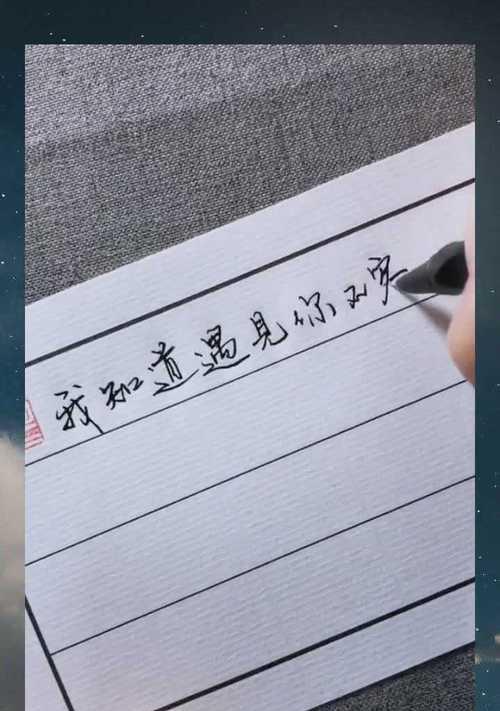 我知道遇见你不容